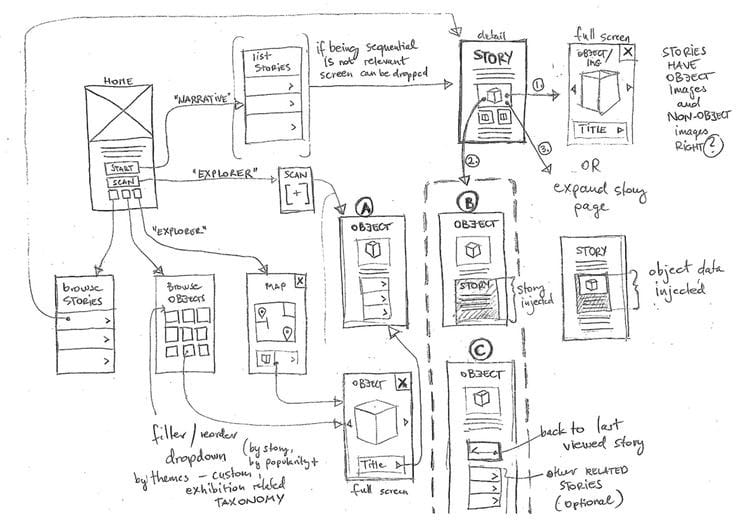 HOME
START
SCAN
"NARRATIVE"
"EXPLORER"
"EXPLORER"
list
STORIES
if being sequential
IS not relevant
screen can be dropped
detail
STORY
1.
2.
3.
full screen
OBJECT/
IMG
X
TITLE
STORIES
HAVE
OBJECT
Images
and
NON-OBJECT
images
RIGHT?
OR
expand story
page
SCAN
[+]
A
OBJECT
B
OBJECT
STORY
story
injected
STORY
object data
injected
browse
STORIES
BROWSE
OBJECTS
MAP
X
OBJECT
X
Title
full screen
filter/reorder
dropdown
(by story,
by popularity+
by themes – custom,
exhibition related
TAXONOMY
C
OBJECT
back to last
viewed story
other RELATED
STORIES
(optional)